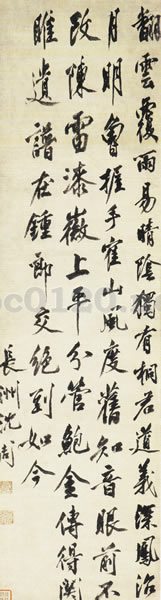 翻雲覆雨易晴陰獨有桐君道義深鳳沼
月明曾握手雀山風度舊知音眼前不
改陳雷漆嶶上平分管鮑金傳得關
雎遺譜在鍾郎交絕到如今
長洲沈周